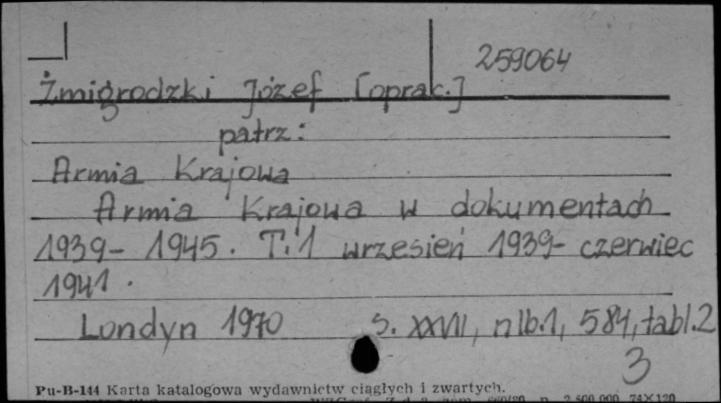 259064
Żmigrodzki Józef [oprac.]
patrz:
Armia Krajowa
Armia Krajowa w dokumentach
1939-1945. T.1 wrzesień 1939- czerwiec
1941.
Londyn 1970 s. XXVII, nlb.1, 584, tabl.2
3
Pu-B-144 Karta katalogowa wydawnictw ciągłych i zwartych.